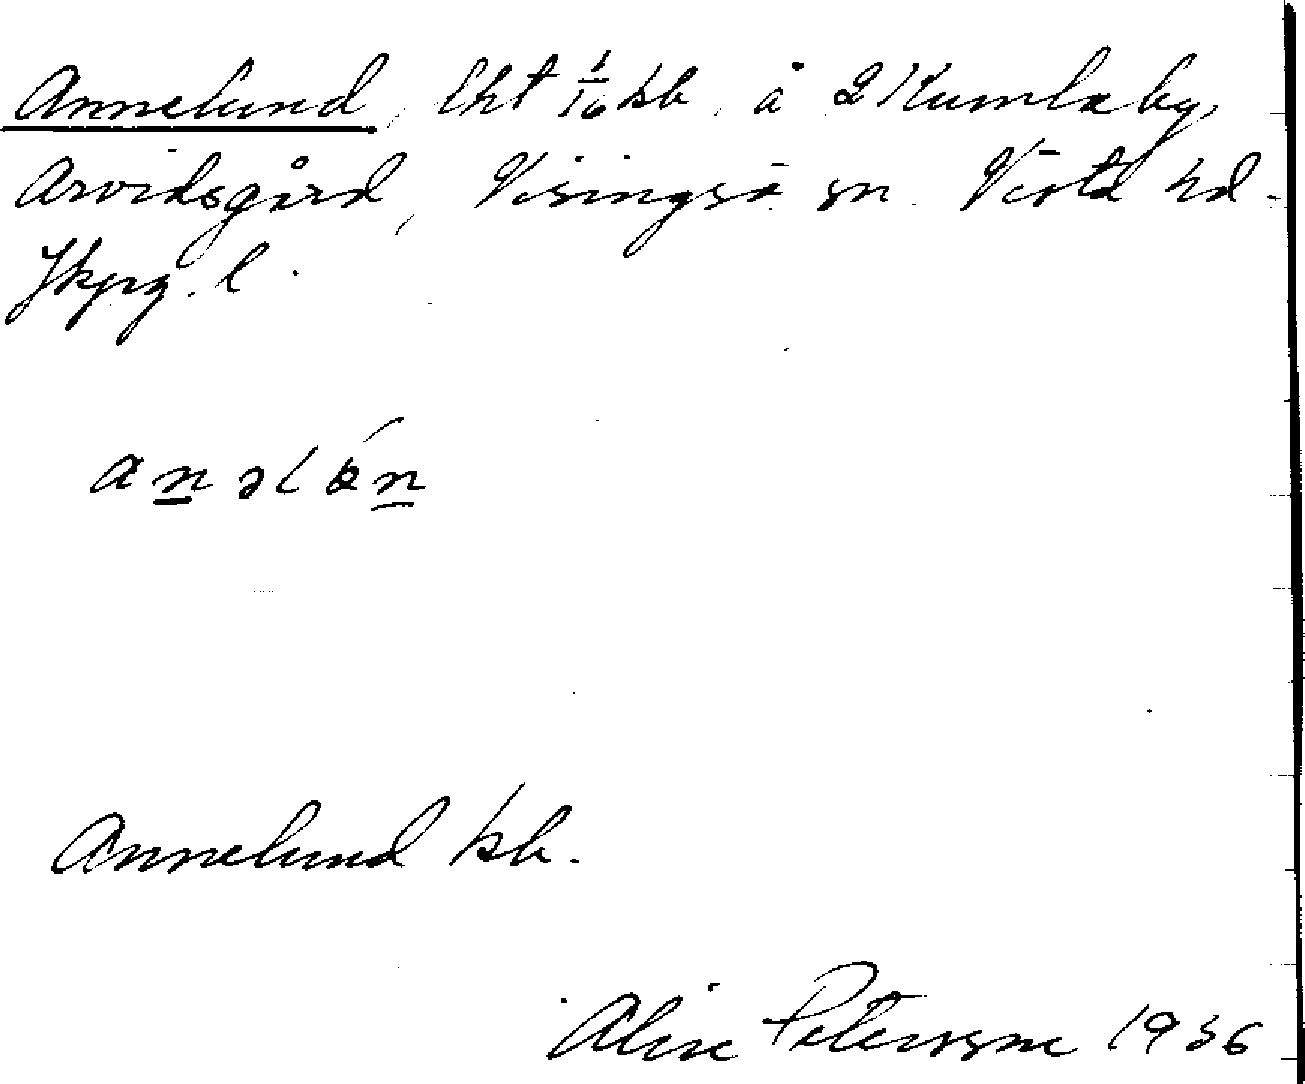 Annelund, lht 1/16 kb. å 2 Kumlaby,
Arvidsgård, Visingsö sn. Vista hd.
Jkpg. l.
anəlón
Annelund kb.
Alice Peterzene 1936